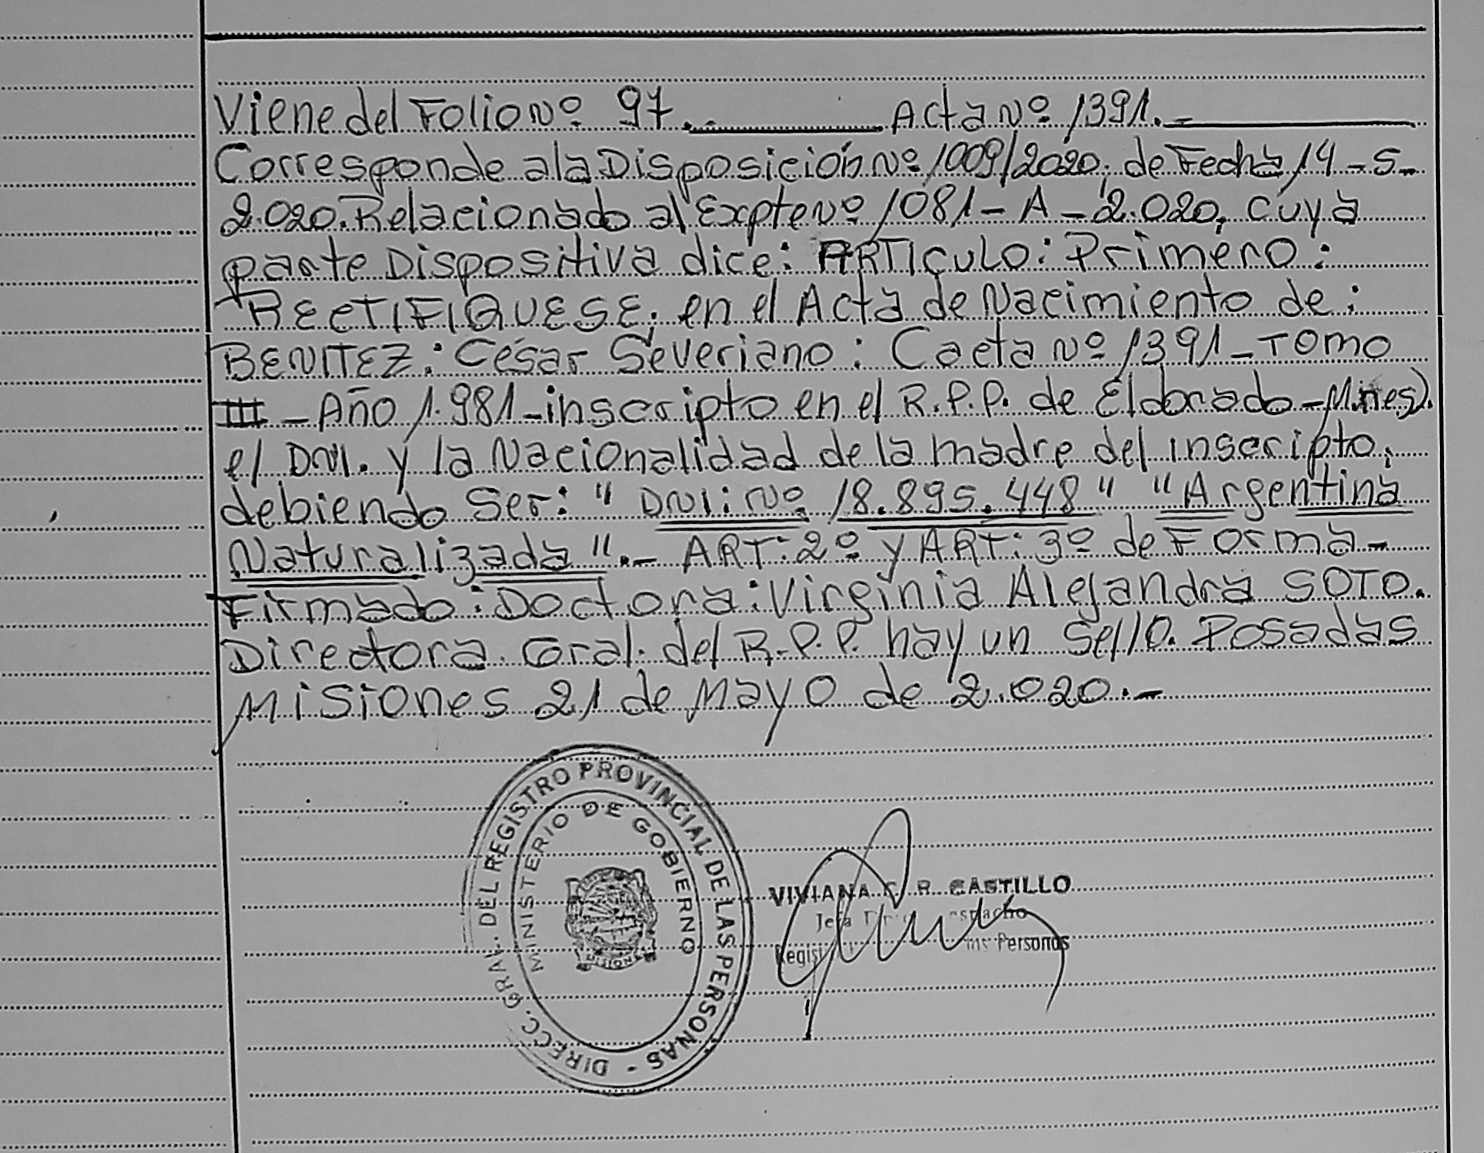 Viene del Folio Nº 97.-. Acta Nº 1391.-
Corresponde a la Disposición Nº 1009/2020, de Fecha 14-5-
2.020. Relacionado al Expte Nº 1081-A-2.020, cuya
parte Dispositiva dice: ARTICULO: Primero:
RECTIFIQUESE. en el Acta de Nacimiento de:
BENITEZ: César Severiano: Cacta Nº 1391-Tomo
III - Año 1.981-inscripto en el R.P.P. de Eldorado-Mnes).
el DNI. y la Nacionalidad de la madre del inscripto,
debiendo Ser: "DNI: Nº 18.895.448" "Argentina
Naturalizada".- ART: 2º y ART: 3º de Forma-
Firmado: Doctora: Virginia Alejandra SOTO.
Directora. Gral. del R.P.P. hay un Sello. Posadas
Misiones 21 de Mayo de 2.020.-
DIRECC. GRAL. DEL REGISTRO PROVINCIAL DE LAS PERSONAS -
MINISTERIO DE GOBIERNO
MISIONES
VIVIANA R. CASTILLO
Jefa
Personas